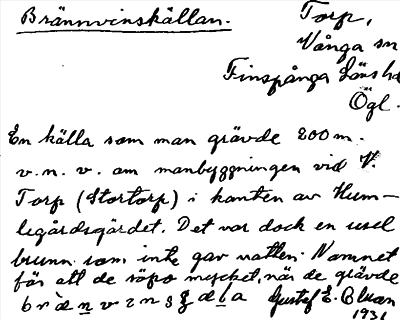 Brännvinskällan.
Torp,
Vånga sn
Finspånga Läns hd
Ögl.
En källa som man grävde 200 m.
v.n.v. om manbyggningen vid V.
Torp (Stortorp) i kanten av Hum-
legårdsgärdet. Det var dock en usel
brunn som inte gav vatten. Namnet
för att de söpo mycket, när de grävde
Gustaf E. Olsson
1931